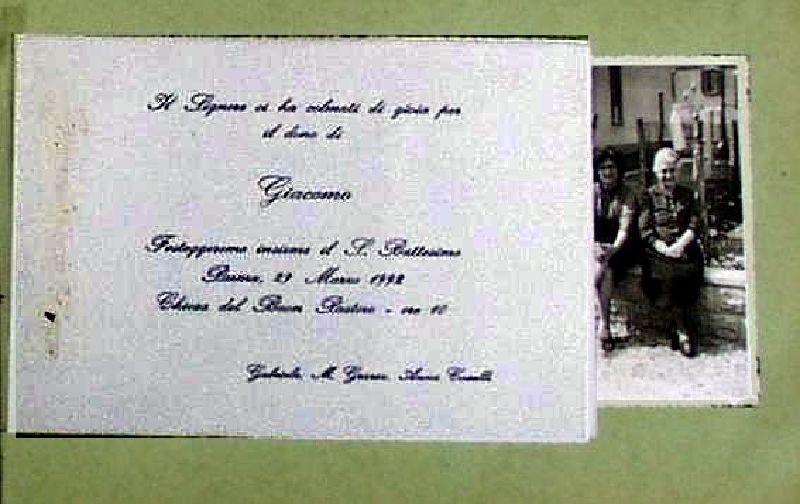 Il Signore ci ha colmati di gioia per
il dono di
Giacomo
Festeggeremo insieme il S. Battesimo
29 Marzo 1992
Chiesa del Buon Pastore - ore 10
Gabriele, M. Anna